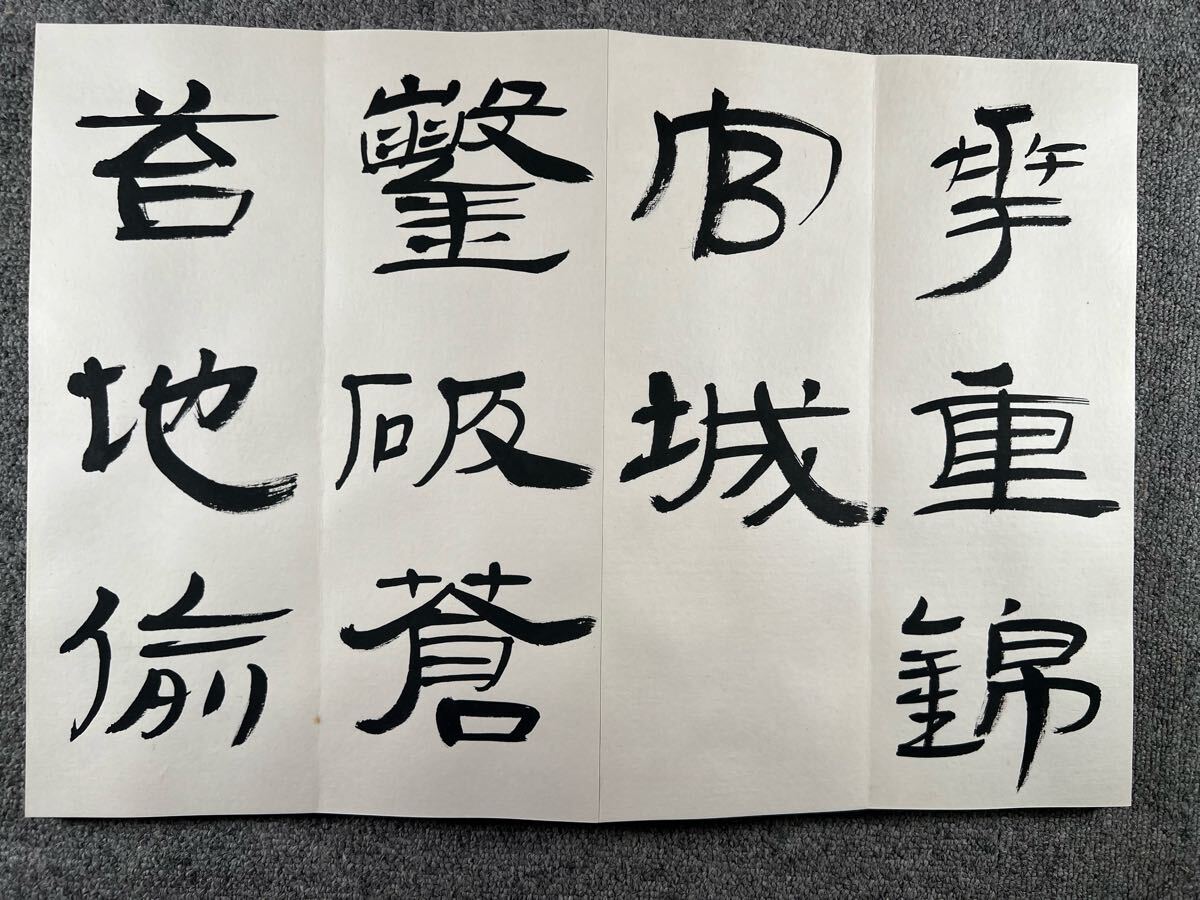 華重錦
官城
鑿破蒼
苔地偷